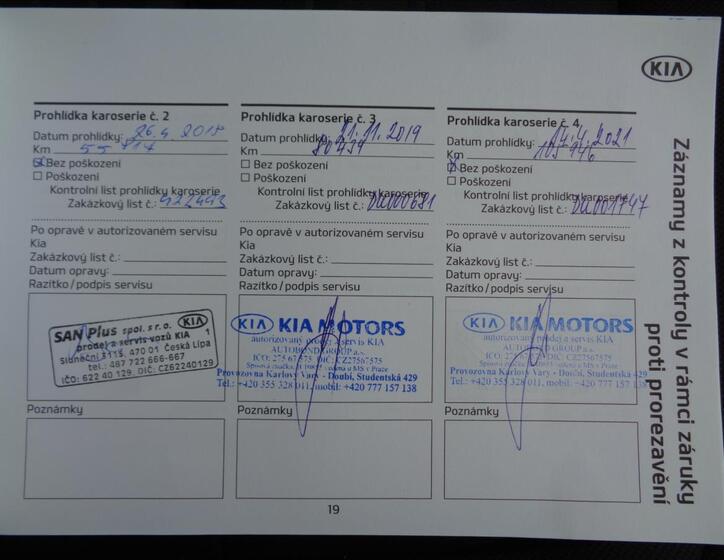 KIA
Záznamy z kontroly v rámci záruky
proti prorezavění
Prohlídka karoserie č. 2
Datum prohlídky: 26.4.2018
Km 55 814
Bez poškození
Poškození
Kontrolní list prohlídky karoserie
Zakázkový list č.: 422493
Po opravě v autorizovaném servisu
Kia
Zakázkový list č.:
Datum opravy:
Razítko/podpis servisu
SAN Plus spol. s r.o. KIA
prodej a servis vozů KIA 1
Sluneční 3115, 470 01 Česká Lípa
tel.: 487 722 666-667
IČO: 622 40 129, DIČ: CZ62240129
Poznámky
Prohlídka karoserie č. 3
Datum prohlídky: 21.11.2019
Km 80434
Bez poškození
Poškození
Kontrolní list prohlídky karoserie
Zakázkový list č.:
Po opravě v autorizovaném servisu
Kia
Zakázkový list č.:
Datum opravy:
Razítko/podpis servisu
KIA KIA MOTORS
autorizovaný prodej a servis KIA
AUTOBOND GROUP a.s.
IČO: 275 67 575, DIČ: CZ27567575
Provozovna Karlovy Vary - Doubí, Studentská 429
Tel.: +420 355 328 011, mobil: +420 777 157 138
Poznámky
Prohlídka karoserie č. 4
Datum prohlídky: 14.4.2021
Km 105 946
Bez poškození
Poškození
Kontrolní list prohlídky karoserie
Zakázkový list č.:
Po opravě v autorizovaném servisu
Kia
Zakázkový list č.:
Datum opravy:
Razítko/podpis servisu
KIA KIA MOTORS
autorizovaný prodej a servis KIA
AUTOBOND GROUP a.s.
IČO: 275 67 575, DIČ: CZ27567575
Provozovna Karlovy Vary - Doubí, Studentská 429
Tel.: +420 355 328 011, mobil: +420 777 157 138
Poznámky
19